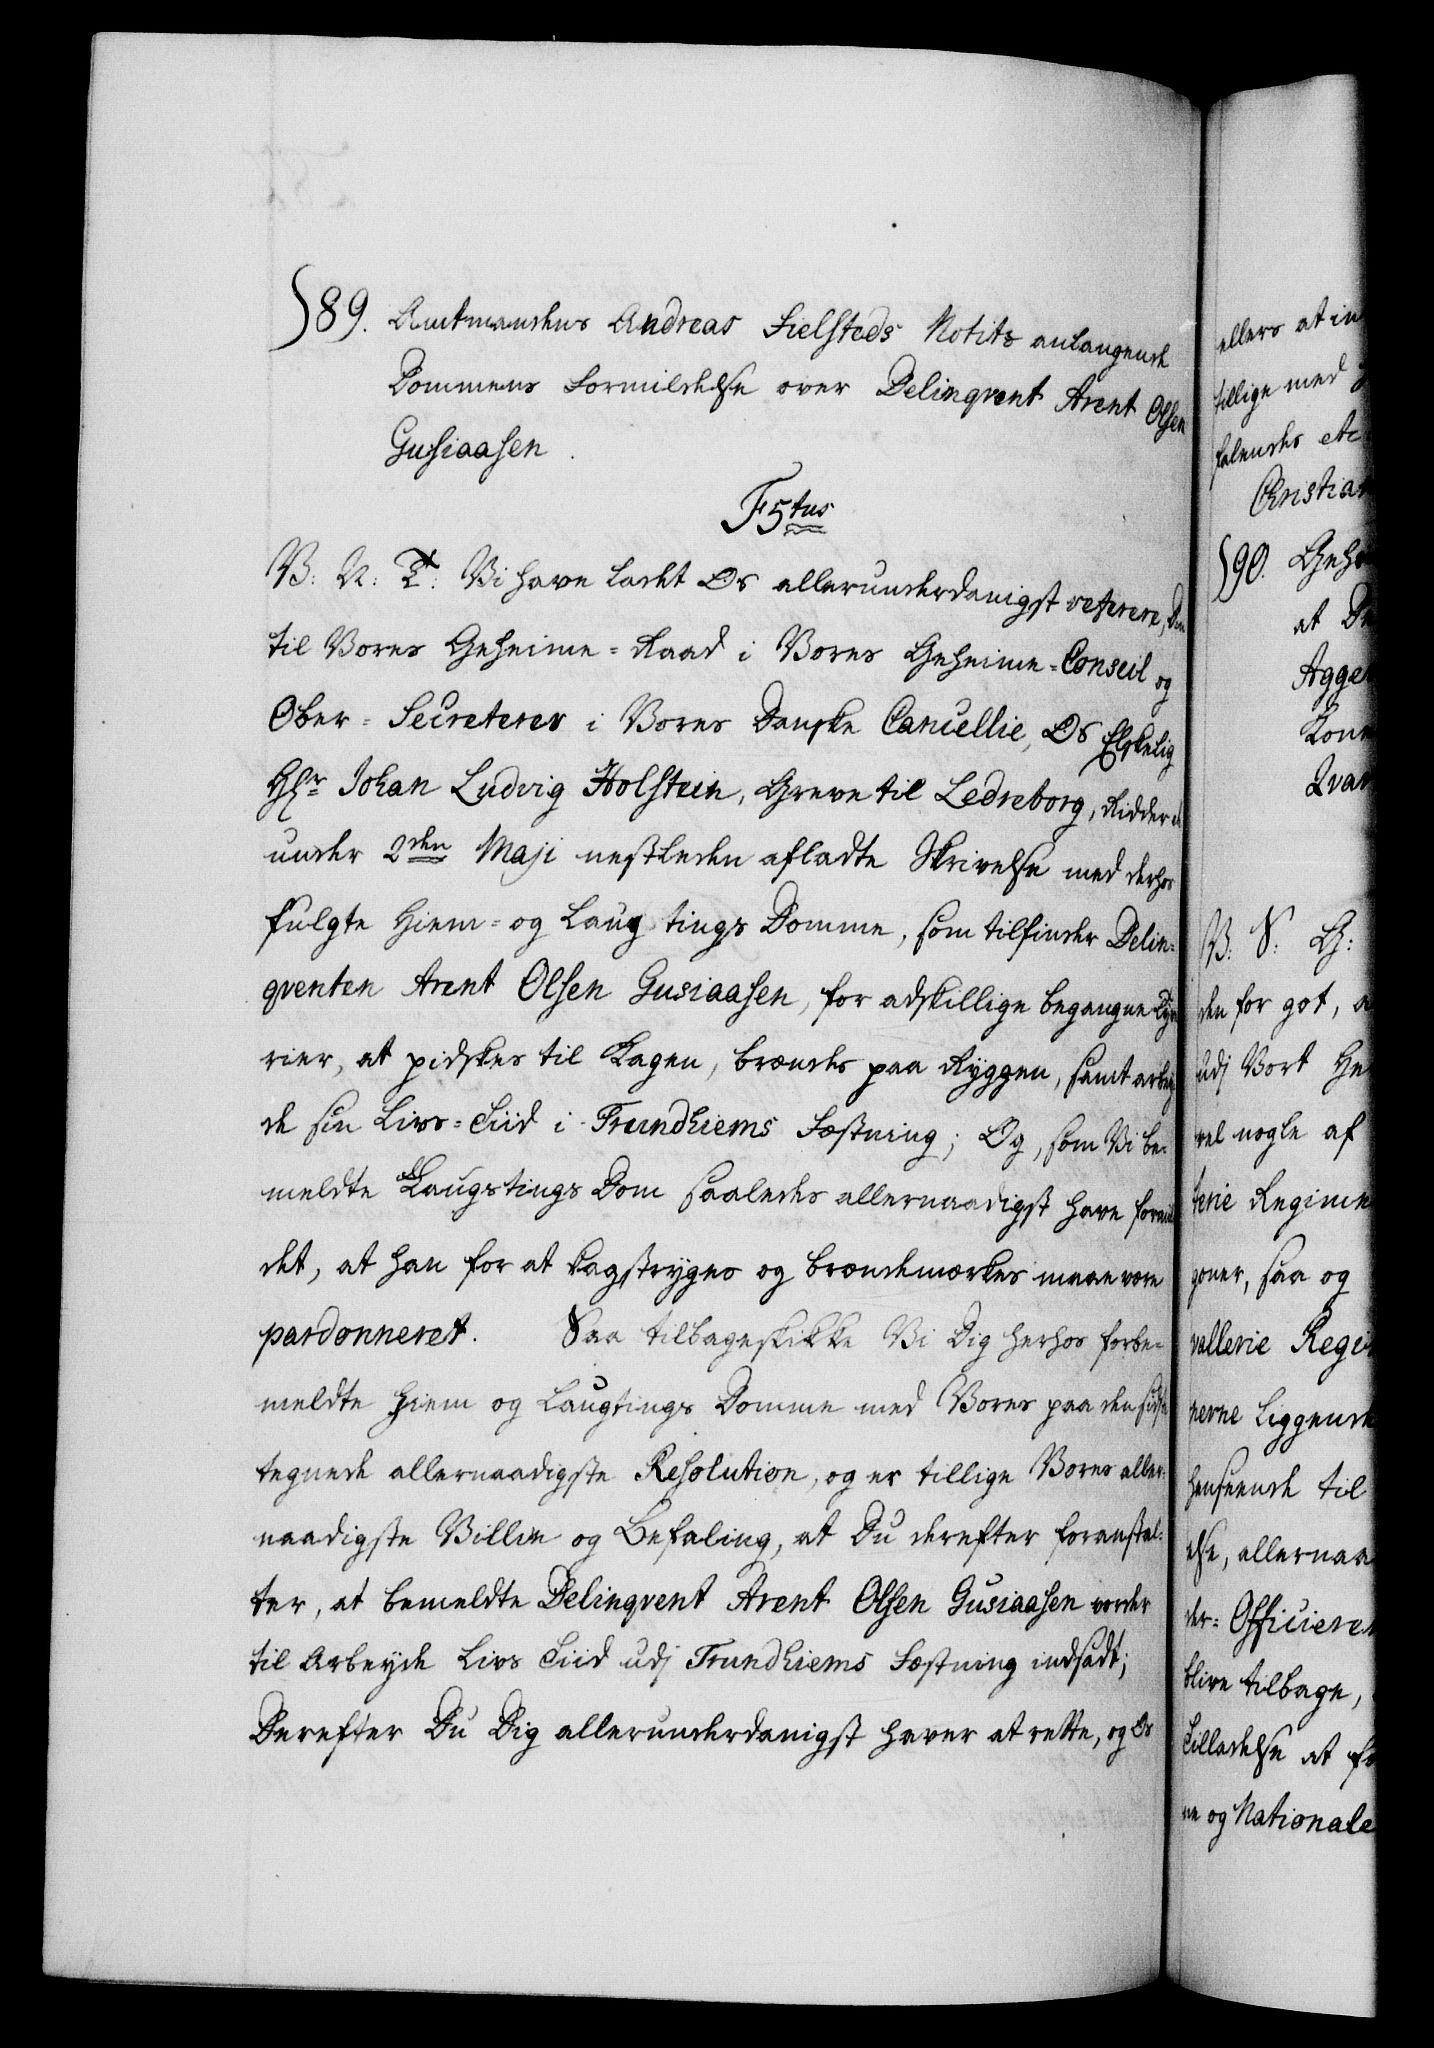 §89. Amtmandens Andreas Fielsteds Notits anlangende
Dommens Formildelse over Delinqvent Arent Olsen
Gusiaasen.
F5tus
V: A: T: Vi have ladet Os allerunderdanigst referere, Din
til Vores Geheime-Raad i Vores Geheime-Conseil og
Ober-Secreterer i Vores Danske Cancellie, Os Elskelig
Hr Johan Ludvig Holstein, Greve til Ledreborg, Ridder
under 2den Maji nestleden afladte Skrivelse med derhos
fulgte Hiem- og Laug tings Domme, som tilfinder Delin-
qventen Arent Olsen Gusiaasen, for adskillige begangne Tyve-
rier, at pidskes til Kagen, brændes paa Ryggen, samt arbey-
de sin Livs-Tiid i Trundhiems Fæstning; Og, som Vi be-
meldte Laugstings Dom saaledes allernaadigst have formil-
det, at han for at kagstryges og brændemærkes maae være
pardonneret. Saa tilbageskikke Vi Dig herhos forbe-
meldte Hiem og Laugtings Domme med Vores paa den sidste
tegnede allernaadigste Resolution, og er tillige Vores aller-
naadigste Villie og Befaling, at Du derefter foranstal-
ter, at bemeldte Delinqvent Arent Olsen Gusiaasen vorder
til Arbeyde Livs Tiid udj Trundhiems Fæstning indsadt;
Derefter Du Dig allerunderdanigst haver at rette, og Os
ellers at in
tillige med
falendes etc
Christian
§90. Gehe
at
Agge
Kon
Qvar
V: S: G:
den for got, a
udj Vort He
vel nogle af
terie Regime
goner, saa og
vallerie Regi
nerne liggende
henseende til
else, allernaa
der-Officiere
blive tilbage,
Tilladelse at f
ne og Nationale